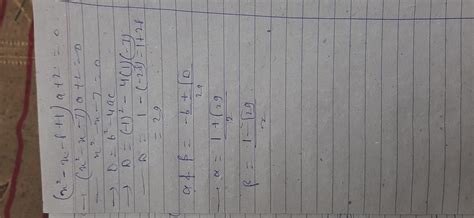 (x² - x - 8 + 1) a + 2 = 0
→ (x² - x - 7) a + 2 = 0
x² - x - 7 = 0
→ D = b² - 4ac
→ D = (-1)² - 4(1)(-7)
D = 1 - (-28) = 1 + 28
= 29
α & β = -b ± √D / 2a
→ α = 1 + √29 / 2
β = 1 - √29 / 2